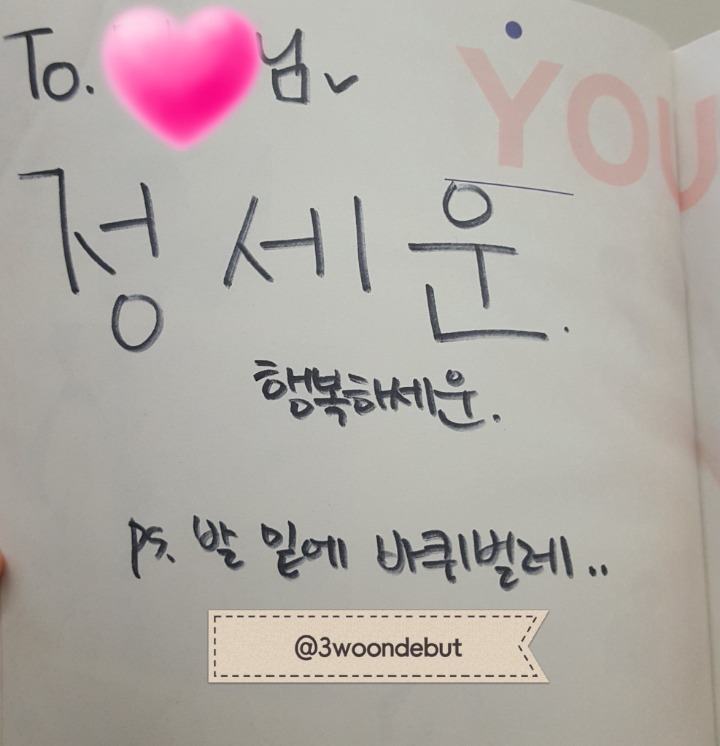 To. 님
YOU
정세운.
행복하세운.
ps. 발 밑에 바퀴벌레..
@3woondebut